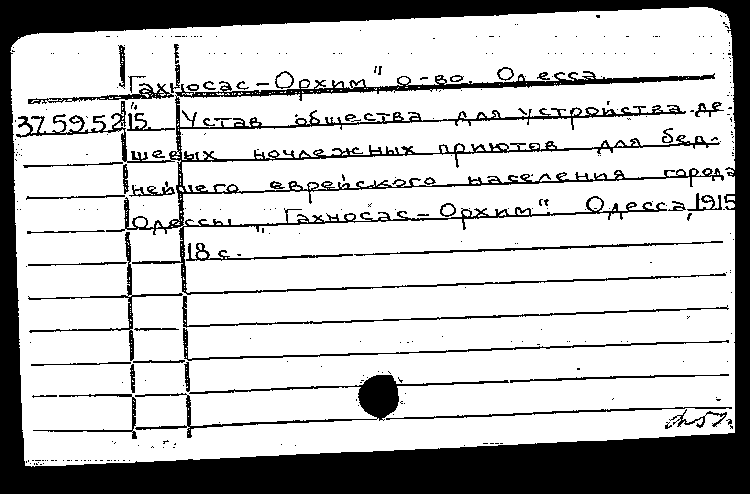 "Гахносас-Орхим", о-во. Одесса.
37.59.5215. Устав общества для устройства де-
шевых ночлежных приютов для бед-
нейшего еврейского населения города
Одессы "Гахносас-Орхим". Одесса, 1915
18 с.